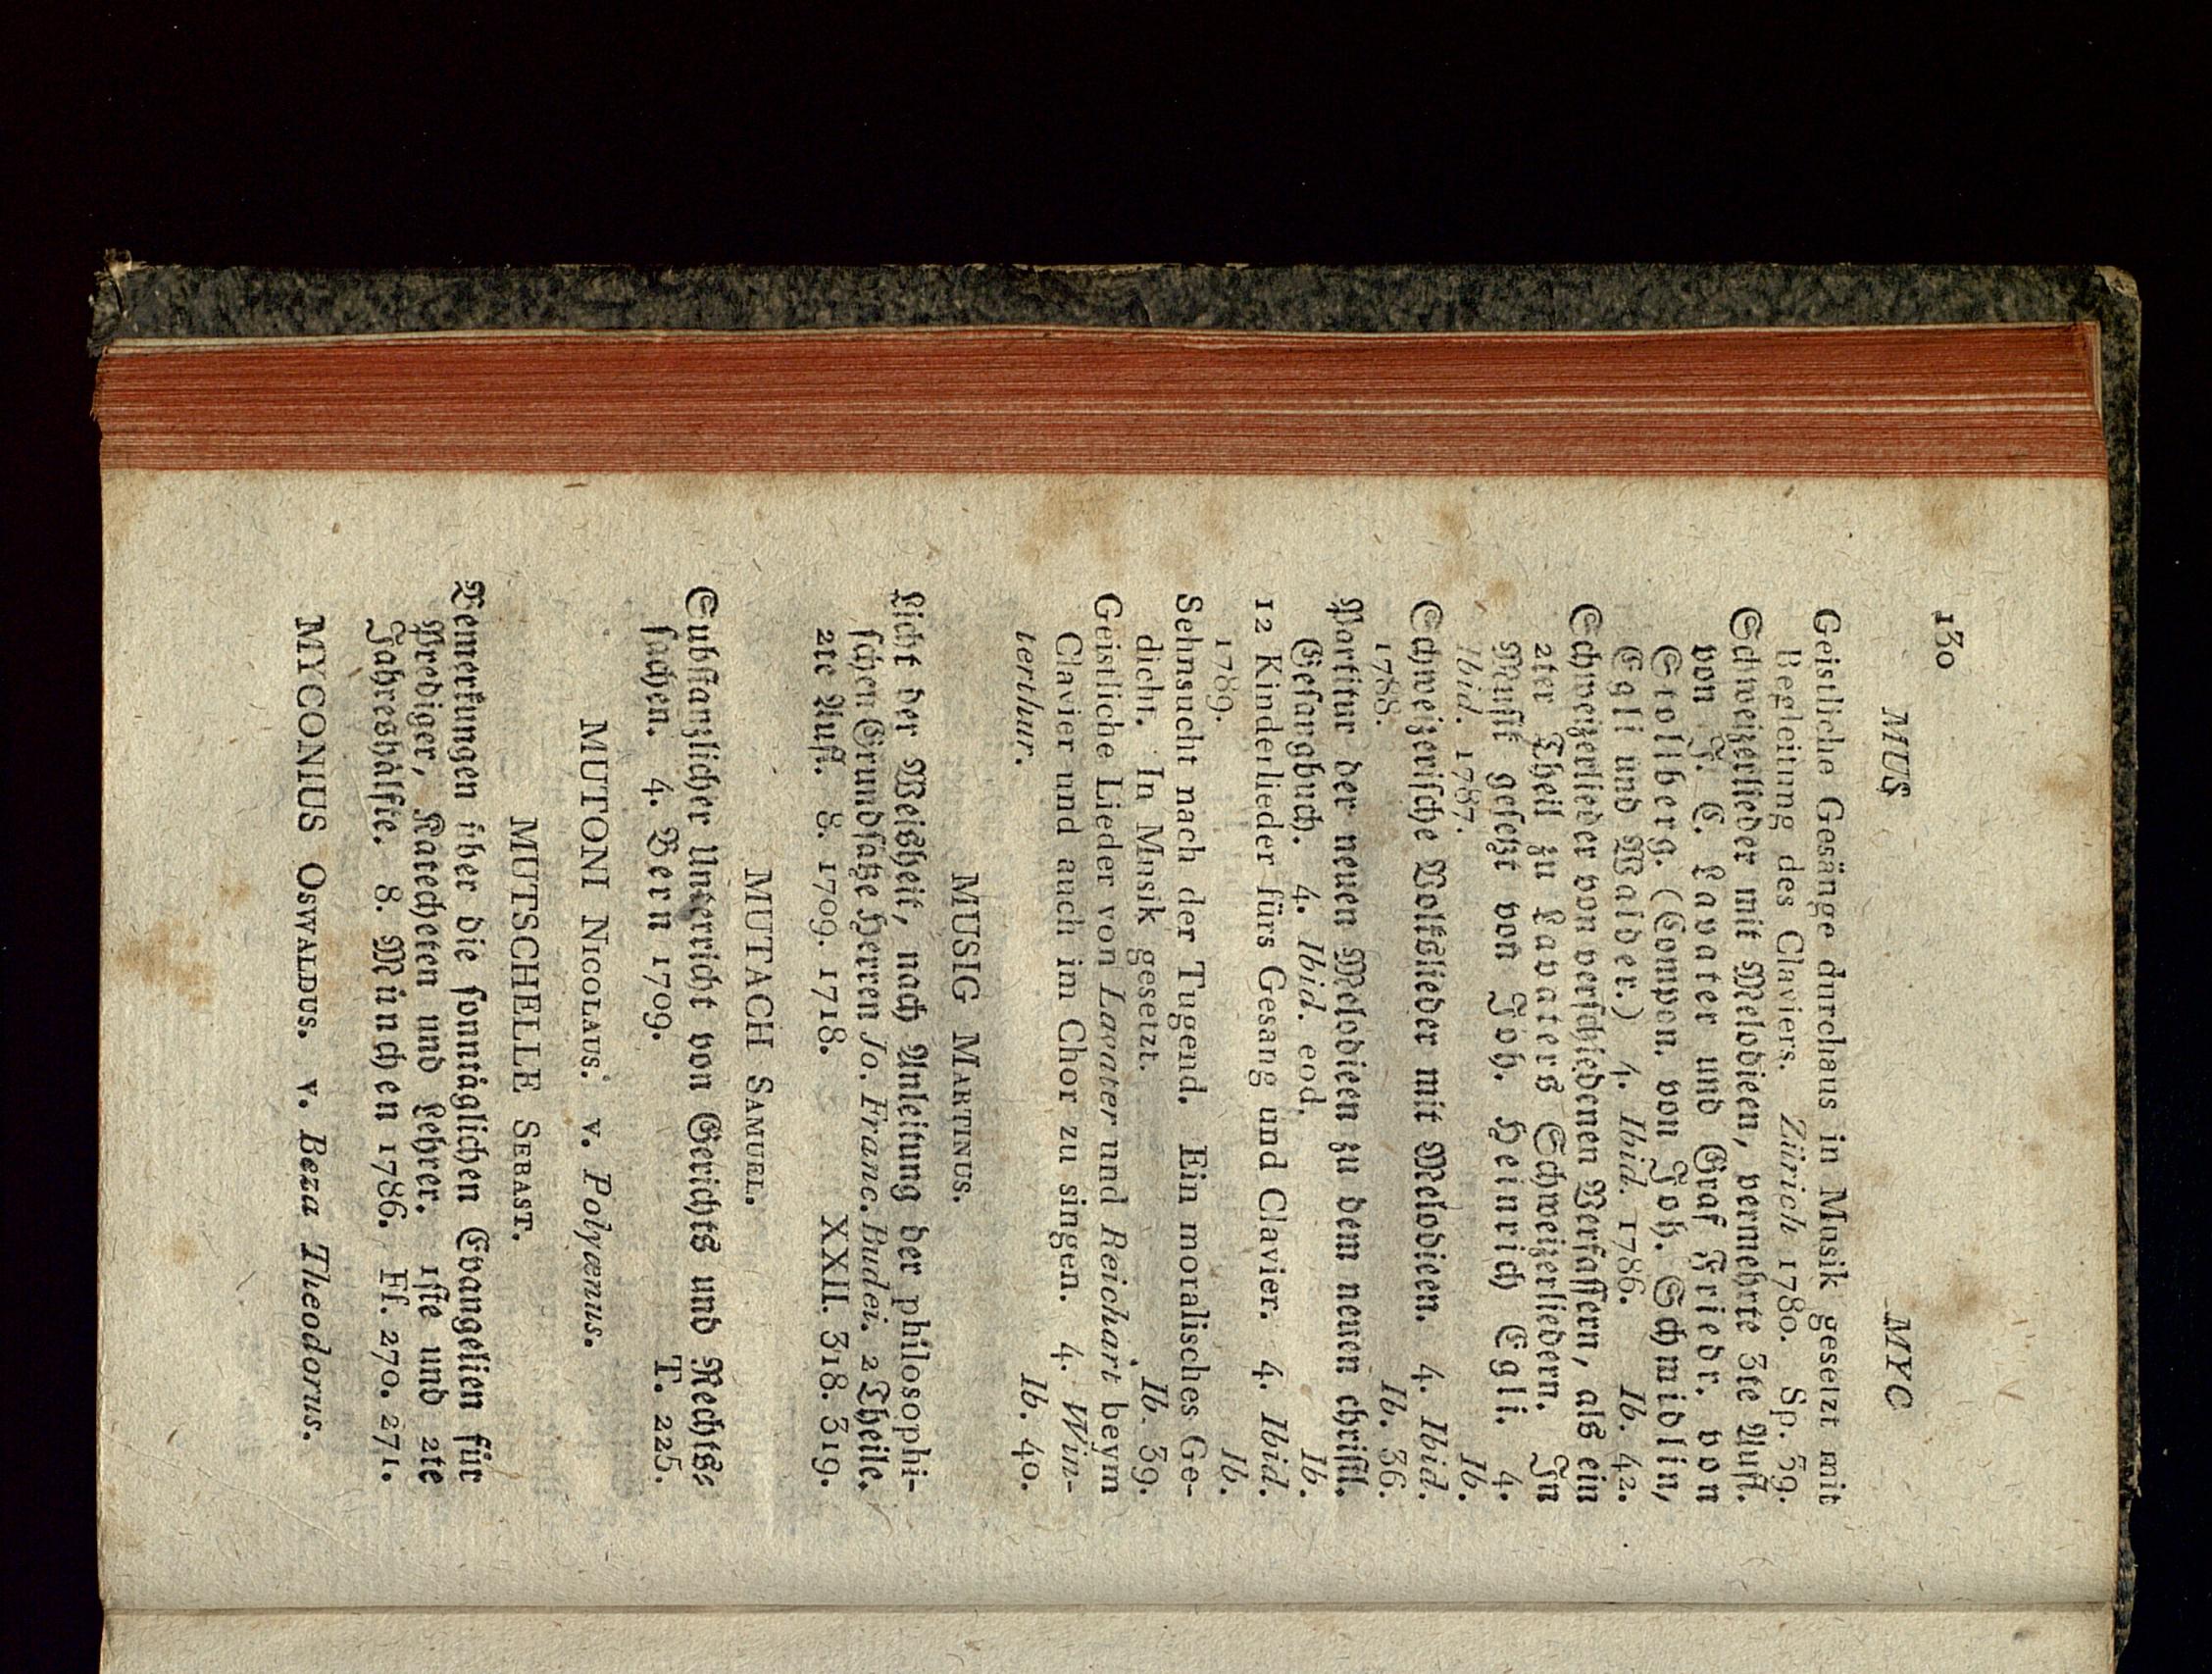 130 MUS MYC
Geistliche Gesänge durchaus in Musik gesetzt mit
Begleitung des Claviers. Zürich 1780. Sp. 39.
Schweizerlieder mit Melodieen, vermehrte 3te Aufl.
von J. C. Lavater und Graf Friedr. von
Stollberg. (Compon. von Joh. Schmidlin,
Egli und Walder.) 4. Ibid. 1786. Ib. 42.
Schweizerlieder von verschiedenen Verfassern, als ein
2ter Theil zu Lavaters Schweizerliedern. In
Musik gesetzt von Joh. Heinrich Egli. 4.
Ibid. 1787. Ib.
Schweizerische Volkslieder mit Melodieen. 4. Ibid.
1788. Ib. 36.
Partitur der neuen Melodieen zu dem neuen christl.
Gesangbuch. 4. Ibid. eod. Ib.
12 Kinderlieder fürs Gesang und Clavier. 4. Ibid.
1789. Ib.
Sehnsucht nach der Tugend. Ein moralisches Ge-
dicht. In Musik gesetzt. Ib. 39.
Geistliche Lieder von Lavater und Reichart beym
Clavier und auch im Chor zu singen. 4. Win-
terthur. Ib. 40.
MUSIG MARTINUS.
Licht der Weisheit, nach Anleitung der philosophi-
schen Grundsätze Herren Jo. Franc. Budei. 2 Theile.
2te Aufl. 8. 1709. 1718. XXII. 318. 319.
MUTACH SAMUEL.
Substanzlicher Unterricht von Gerichts und Rechts-
sachen. 4. Bern 1709. T. 225.
MUTONI NICOLAUS. v. Polyænus.
MUTSCHELLE SEBAST.
Bemerkungen über die sonntäglichen Evangelien für
Prediger, Katecheten und Lehrer. 1ste und 2te
Jahreshälfte. 8. München 1786. Ff. 270. 271.
MYCONIUS OSWALDUS. v. Beza Theodorus.